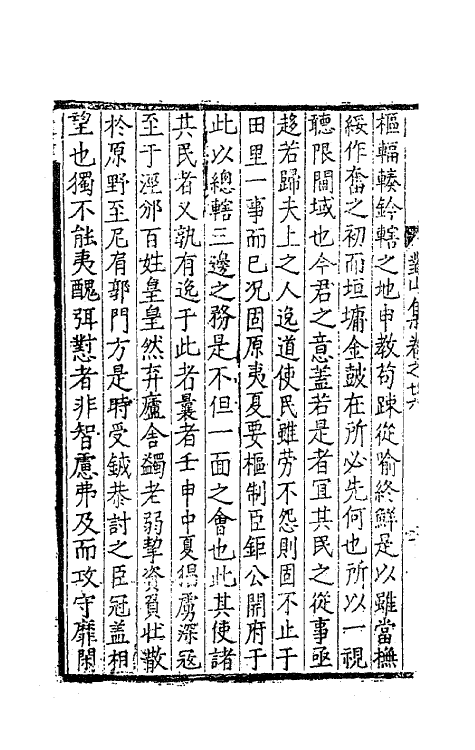 樞輻輳鈐轄之地申教苟踈從喻終鮮是以雖當撫
綏作奮之初而垣墉金鼓在所必先何也所以一視
聽限閫域也今君之意蓋若是者冝其民之從事亟
趍若歸夫上之人逸道使民雖勞不怨則固不止于
田里一事而已况固原夷夏要樞制臣鉅公開府于
此以總轄三邊之務是不但一面之會也此其使諸
其民者又孰有逸于此者曩者壬申中夏猖虜深冦
至于涇邠百姓皇皇然弃廬舍蠲老弱挈資負壯散
於原野至凥肩郭門方是時受鉞恭討之臣冠盖相
望也獨不能夷醜弭懟者非智慮弗及而攻守靡閑
對山集卷之